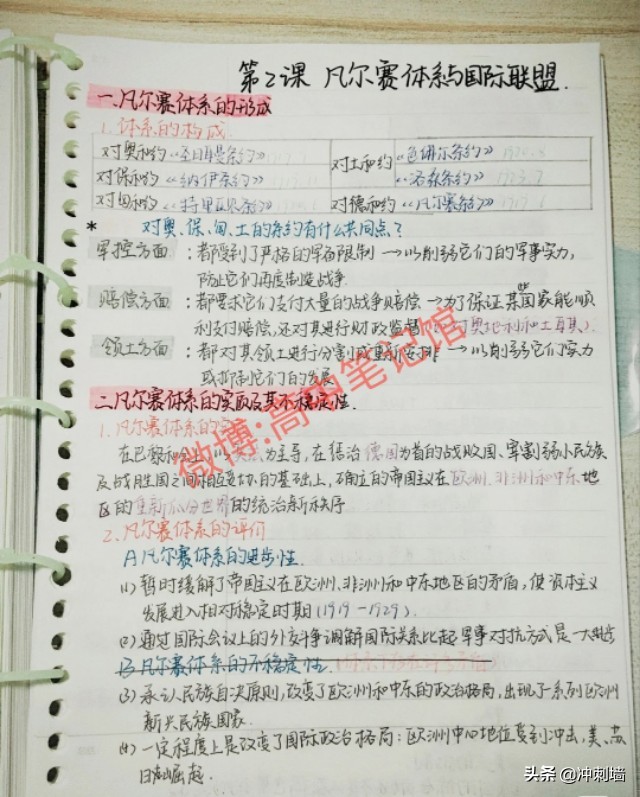 第2课 凡尔赛体系与国际联盟.
一.凡尔赛体系的形成
1.体系的构成
对奥和约 《圣日耳曼条约》 对土和约 《色佛尔条约》
对保和约 《纳伊条约》 《洛桑条约》 1923.7
对匈和约 《特里亚农条约》 对德和约 《凡尔赛条约》
* 对奥、保、匈、土的条约有什么共同点?
军控方面 : 都受到了严格的军备限制 → 以削弱它们的军事实力,
防止它们再度制造战争.
赔偿方面 : 都要求它们支付大量的战争赔偿 → 为了保证某些国家能顺
利支付赔偿,还对其进行财政监督 对奥地利和土耳其).
领土方面 : 都对其领土进行分割或重新安排 → 以削弱它们实力
或抑制它们的发展
二.凡尔赛体系的实质及其不稳定性.
1.凡尔赛体系的
在巴黎和会上 为主导,在惩治德国为首的战败国、宰割弱小民族
及战胜国之间相互妥协的基础上,确立的帝国主义在欧洲、非洲和中东地
区的重新瓜分世界的统治新秩序
2.凡尔赛体系的评价
A凡尔赛体系的进步性.
(1)暂时缓解了帝国主义在欧洲、非洲和中东地区的矛盾,使资本主义
发展进入相对稳定时期(1919-1929).
(2)通过国际会议上的外交斗争调解国际关系比起军事对抗方式是一大进步
B.凡尔赛体系的不稳定性.
(3)承认民族自决原则,改变了欧洲和中东的政治格局,出现了一系列欧洲
新兴民族国家.
(4)一定程度上是改变了国际政治格局:欧洲中心地位受到冲击,美、苏
日崛起.
微博:高中笔记馆
头条 @冲刺墙